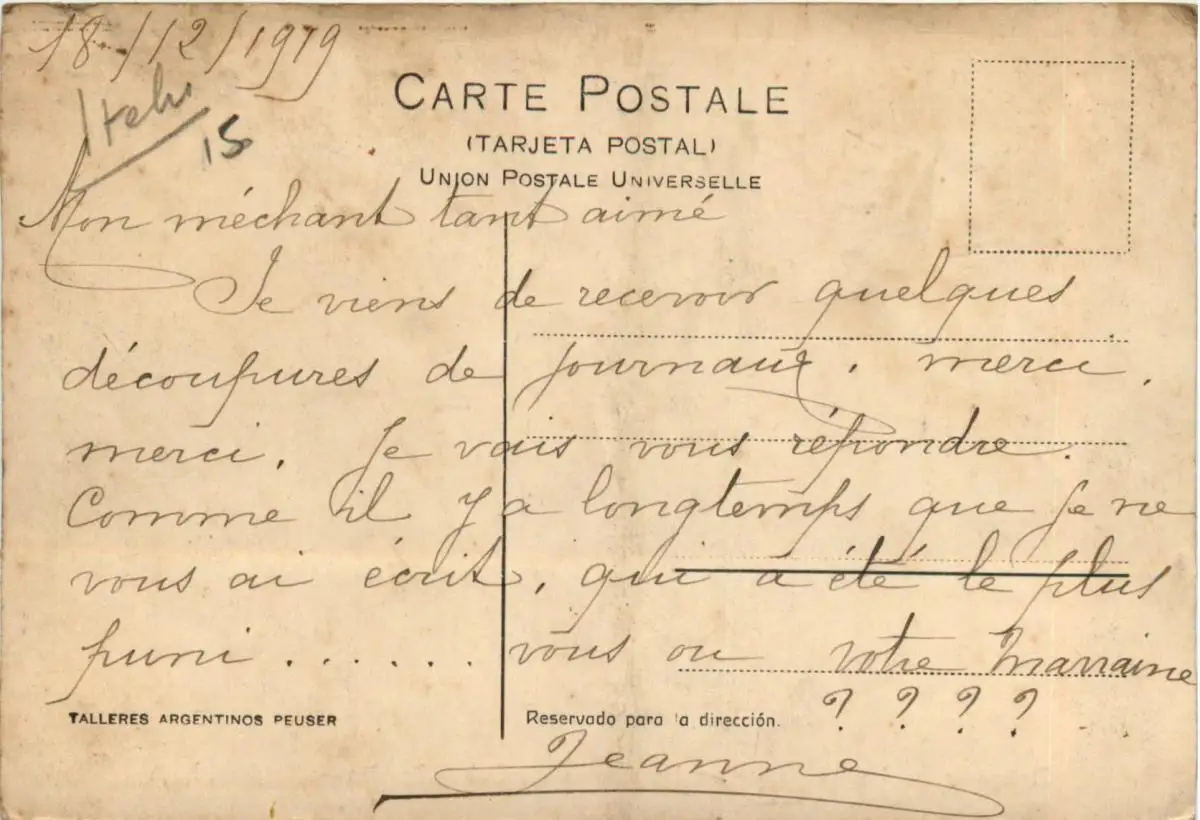 18/12/1919
15
CARTE POSTALE
(TARJETA POSTAL)
UNION POSTALE UNIVERSELLE
Mon méchant tant aimé
Je viens de recevoir quelques
découpures de journaux. merci,
merci. Je vais vous répondre.
Comme il y a longtemps que je ne
vous ai écrit, qui a été le plus
puni ....... vous ou votre marraine
? ? ? ?
TALLERES ARGENTINOS PEUSER
Reservado para la dirección.
Jeanne